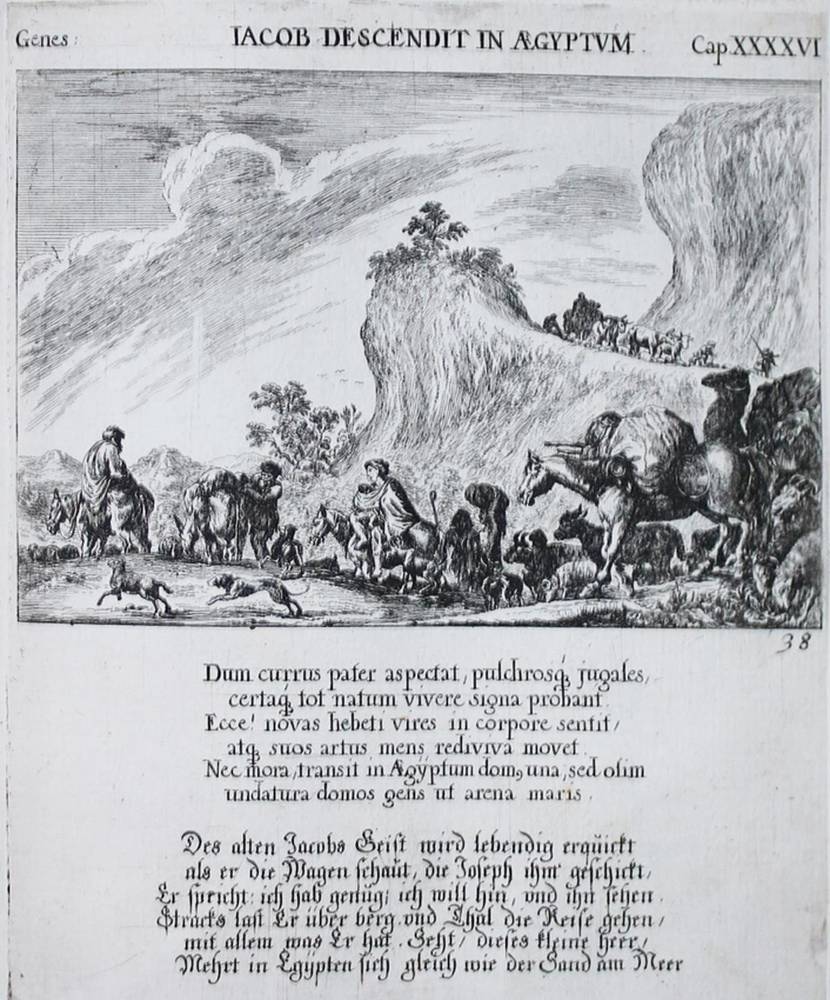 Genes:
IACOB DESCENDIT IN ÆGYPTVM.
Cap.XXXXVI
38
Dum currus pater aspectat, pulchrosq, jugales,
certaq, tot natum vivere signa probant.
Ecce! novas hebeti vires in corpore sentit,
atq, suos artus mens rediviva movet.
Nec mora, transit in Ægyptum domꝰ una, sed olim
undatura domos gens ut arena maris.
Des alten Jacobs Geist wird lebendig erquickt
als er die Wagen schaut, die Joseph ihm geschickt,
Er spricht: ich hab genug; ich will hin, und ihn sehen.
Stracks last Er über berg und Thal die Reise gehen,
mit allem was Er hat. Seht, dieses kleine heer,
Mehrt in Egÿpten sich gleich wie der Sand am Meer